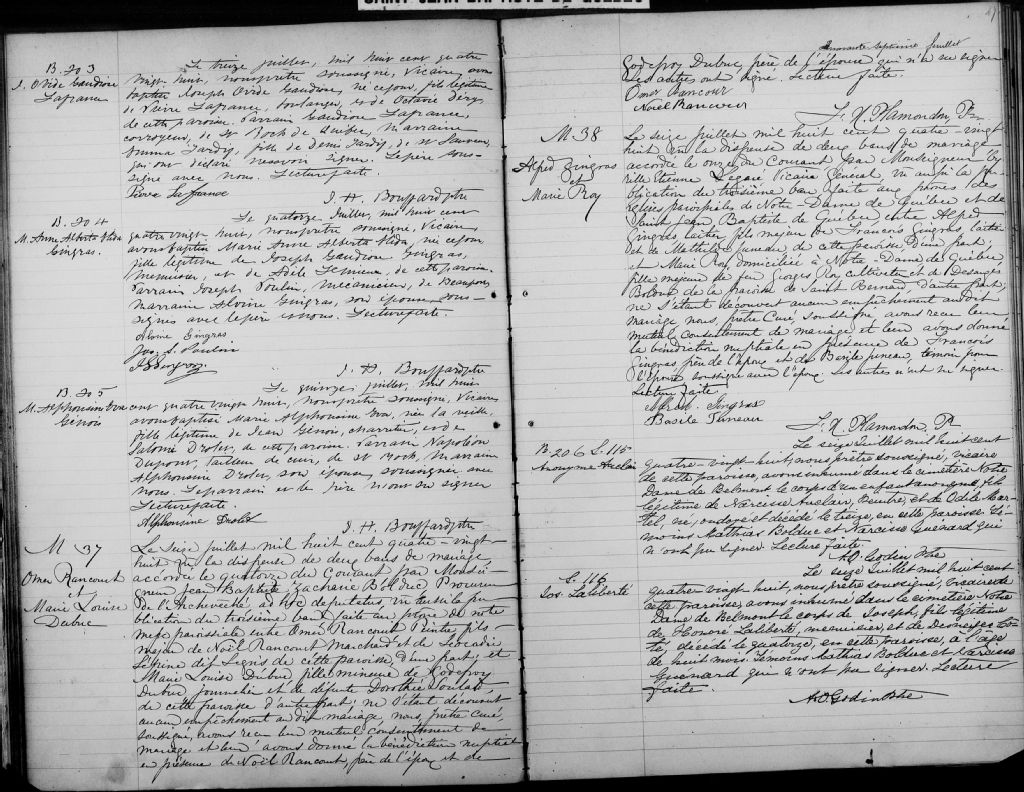 SAINT JEAN BAPTISTE DE QUÉBEC
B. 203
J. Ovide Gaudiose
Lafrance
Le treize juillet, mil huit cent quatre
vingt huit, nous prêtre soussigné, Vicaire avons
baptisé Joseph Ovide Gaudiose, né ce jour, fils légitime
de Pierre Lafrance, boulanger, et de Octavie Déry,
de cette paroisse. Parrain Gaudiose Lafrance,
corroyeur, de St Roch de Québec, marraine
Emma Tardif, fille de Denis Tardif, de St Sauveur,
qui ont déclaré ne savoir signer. Le père sous-
signé avec nous. Lecture faite.
Pierre Lafrance
J. H. Bouffard ptre
B. 204
M. Anne Alberta Alida
Gingras.
Le quatorze Juillet, mil huit cent
quatre vingt huit, nous prêtre soussigné, Vicaire,
avons baptisé Marie Anne Alberta Alida, née ce jour,
fille légitime de Joseph Gaudiose Gingras,
menuisier, et de Adèle Lemieux, de cette paroisse.
Parrain Joseph Poulin, mécanicien, de Beauport,
marraine Alvine Gingras, son épouse, sous-
signés avec le père et nous. Lecture faite.
Alvine Gingras
Jos. S. Poulin
J. H. Bouffard ptre
B. 205
M. Alphonsine Eva
Génois
Le quinze juillet, mil huit
cent quatre vingt huit, nous prêtre soussigné, Vicaire
avons baptisé Marie Alphonsine Eva, née la veille,
fille légitime de Jean Génois, charretier, et de
Salomé Drolet, de cette paroisse. Parrain Napoléon
Dupont, tailleur de cuir, de St Roch, Marraine
Alphonsine Drolet, son épouse soussignée avec
nous. Le parrain et le père n'ont su signer
Lecture faite.
Alphonsine Drolet
J. H. Bouffard ptre
M 37
Omer Rancourt
et
Marie Louise
Dubuc
Le seize juillet mil huit cent quatre-vingt
huit vu la dispense de deux bans de mariage
accordée le quatorze du Courant par Monsei-
gneur Jean Baptiste Zacharie Bolduc Procureur
de l'Archevêché, ad hoc deputatus, vu aussi la pu-
blication du troisième ban faite au prône de notre
messe paroissiale entre Omer Rancourt Peintre, fils
majeur de Noël Rancourt Marchand et de Léocadie
de cette paroisse d'une part; et
Marie Louise Dubuc fille mineure de Godefroy
Dubuc journalier et de défunte Dorothée
de cette paroisse d'autre part; ne s'étant découvert
aucun empêchement au dit mariage, nous, prêtre curé
soussigné, avons reçu leur mutuel consentement de
mariage et leur avons donné la bénédiction nuptiale
en présence de Noël Rancourt, père de l'époux et de
Quarante septième feuillet
Godefroy Dubuc, père de l'épouse qui n'a su signer
Les autres ont signé. Lecture faite.
Omer Rancour
Noël Rancour
F. X. Plamondon, Ptr
M. 38
Alfred Gingras
et
Marie Roy
Le seize juillet mil huit cent quatre-vingt
huit vu la dispense de deux bans de mariage
accordée le onze du Courant par Monseigneur Cy-
rille Etienne Legaré Vicaire Général, vu aussi la pu-
blication du troisième ban faite aux prônes des
messes paroissiales de Notre-Dame de Québec et de
Saint Jean Baptiste de Québec, entre Alfred
Gingras laitier, fils majeur de François Gingras laitier
et de Mathilde Juneau de cette paroisse d'une part;
et Marie Roy domiciliée à Notre-Dame de Québec,
fille majeure de feu Georges Roy cultivateur et de Desanges
Bolduc de la paroisse de Saint Bernard, d'autre part;
ne s'étant découvert aucun empêchement au dit
mariage nous, prêtre Curé, soussigné, avons reçu leur
mutuel consentement de mariage et leur avons donné
la bénédiction nuptiale en présence de François
Gingras père de l'époux et de Basile Juneau, témoin pour
l'épouse soussigné avec l'époux. Les autres n'ont su signer.
Lecture faite.
Alfred Gingras
Basile Juneau
F. X. Plamondon, Ptr
B. 206 S. 115
Anonyme Auclair
Le seize Juillet mil huit cent
quatre-vingt huit, nous prêtre soussigné, vicaire
de cette paroisse, avons inhumé dans le cimetière Notre
Dame de Belmont le corps d'un enfant anonyme, fils
légitime de Narcisse Auclair, Peintre, et de Odile Mar-
tel, né, ondoyé et décédé le treize, en cette paroisse. Té-
moins Mathias Bolduc et Narcisse Guénard qui
n'ont pu signer. Lecture faite.
A. O. Godin Ptre
S. 116
Jos. Laliberté
Le seize Juillet mil huit cent
quatre-vingt huit, nous prêtre soussigné, vicaire de
cette paroisse, avons inhumé dans le cimetière Notre
Dame de Belmont le corps de Joseph, fils légitime
de Honoré Laliberté, menuisier, et de Desneiges Cô-
té, décédé le quatorze, en cette paroisse, à l'âge
de huit mois. Témoins Mathias Bolduc et Narcisse
Guénard qui n'ont pu signer. Lecture
faite.
A. O. Godin Ptre